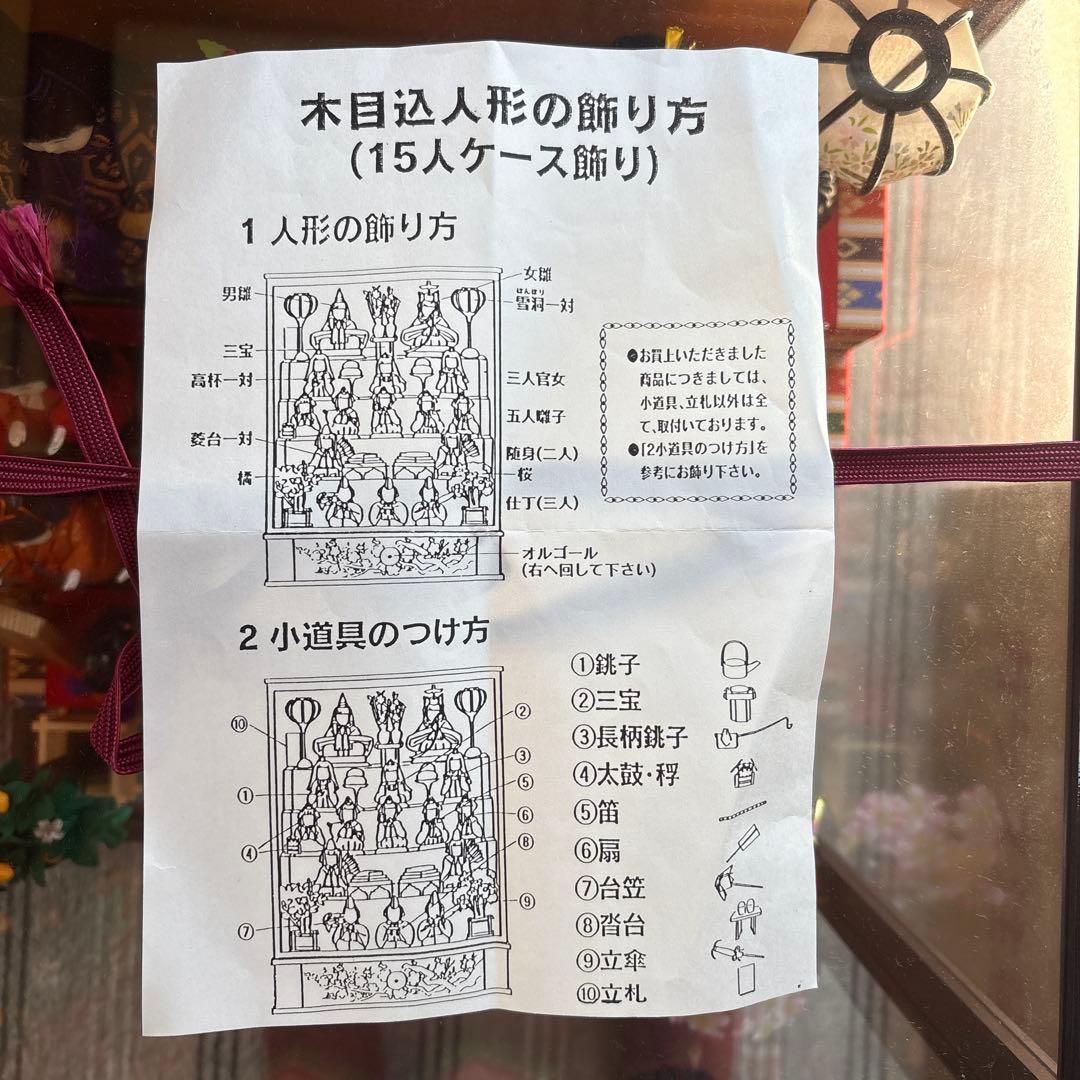 木目込人形の飾り方
(15人ケース飾り)
1 人形の飾り方
男雛
三宝
高杯一対
菱台一対
橘
女雛
ぼんぼり
雪洞一対
三人官女
五人囃子
随身(二人)
桜
仕丁(三人)
オルゴール
(右へ回して下さい)
●お買上いただきました
商品につきましては、
小道具、立札以外は全
て、取付いております。
●「2小道具のつけ方」を
参考にお飾り下さい。
2 小道具のつけ方
⑩
①
④
⑦
②
③
⑤
⑥
⑧
⑨
①銚子
②三宝
③長柄銚子
④太鼓・桴
⑤笛
⑥扇
⑦台笠
⑧沓台
⑨立傘
⑩立札